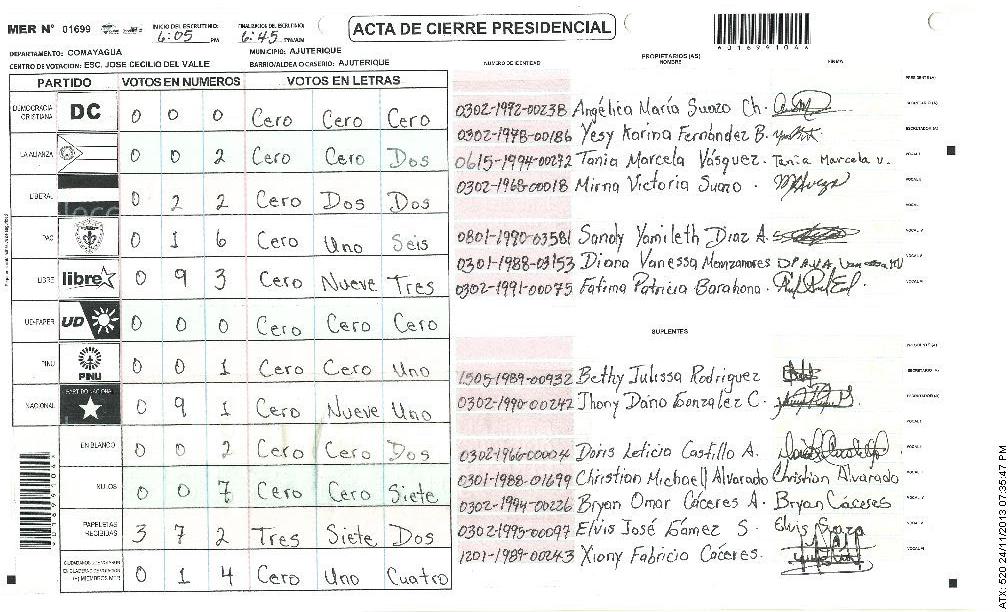 MER Nº 01699 INICIO DEL ESCRUTINIO: 6:05 PM FINALIZACION DEL ESCRUTINIO: 6:45 PM/AM
ACTA DE CIERRE PRESIDENCIAL
DEPARTAMENTO: COMAYAGUA MUNICIPIO: AJUTERIQUE
CENTRO DE VOTACION: ESC. JOSE CECILIO DEL VALLE BARRIO/ALDEA O CASERIO: AJUTERIQUE
PARTIDO VOTOS EN NUMEROS VOTOS EN LETRAS
DEMOCRACIA CRISTIANA DC 0 0 0 Cero Cero Cero
LA ALIANZA 0 0 2 Cero Cero Dos
LIBERAL 0 2 2 Cero Dos Dos
PAC 0 1 6 Cero Uno Seis
LIBRE libre 0 9 3 Cero Nueve Tres
UD-FAPER UD 0 0 0 Cero Cero Cero
PINU PINU 0 0 1 Cero Cero Uno
NACIONAL PARTIDO NACIONAL 0 9 1 Cero Nueve Uno
EN BLANCO 0 0 2 Cero Cero Dos
NULOS 0 0 7 Cero Cero Siete
PAPELETAS RECIBIDAS 3 7 2 Tres Siete Dos
(*) MIEMBROS MER 0 1 4 Cero Uno Cuatro
NUMERO DE IDENTIDAD PROPIETARIOS (AS) NOMBRE FIRMA
PRESIDENTE (A)
0302-1992-00238 Angélica María Suazo Ch. SECRETARIO (A)
0302-1978-00186 Yesy Karina Fernández B. ESCRUTADOR (A)
0615-1994-00272 Tania Marcela Vásquez. Tania Marcela V. VOCAL I
0302-1968-00018 Mirna Victoria Suazo. VOCAL II
VOCAL
0801-1990-03581 Sandy Yamileth Díaz A. VOCAL
0301-1988-03153 Diana Vanessa Manzanares VOCAL
0302-1991-00075 Fatima Patricia Barahona. VOCAL
SUPLENTES
PRESIDENTE (A)
1505-1989-00932 Bethy Julissa Rodriguez SECRETARIO (A)
0302-1990-00242 Jhony Dario Gonzalez C. ESCRUTADOR (A)
VOCAL I
0302-1966-00004 Doris Leticia Castillo A. VOCAL
0301-1988-01699 Christian Michaell Alvarado Christian Alvarado VOCAL
0302-1994-00226 Bryan Omar Cáceres A. Bryan Cáceres VOCAL
0302-1995-00097 Elvis José Gámez S. Elvis VOCAL
1201-1989-00243 Xiony Fabricio Cáceres. VOCAL
ATX: 520 24/11/2013 07:35:47 PM